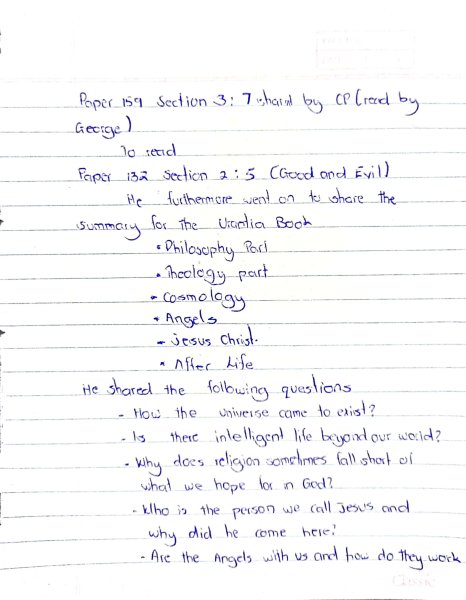 Paper 159 Section 3:7 shared by CP (read by
George)
To read
Paper 132 Section 2:5 (Good and Evil)
He furthermore went on to share the
summary for The Urantia Book
• Philosophy Part
• Theology part
• Cosmology
• Angels
- Jesus Christ.
• After Life
He shared the following questions
- How the universe came to exist?
- Is there intelligent life beyond our world?
- Why does religion sometimes fall short of
what we hope for in God?
- Who is the person we call Jesus and
why did he come here?
- Are the Angels with us and how do they work
Classic